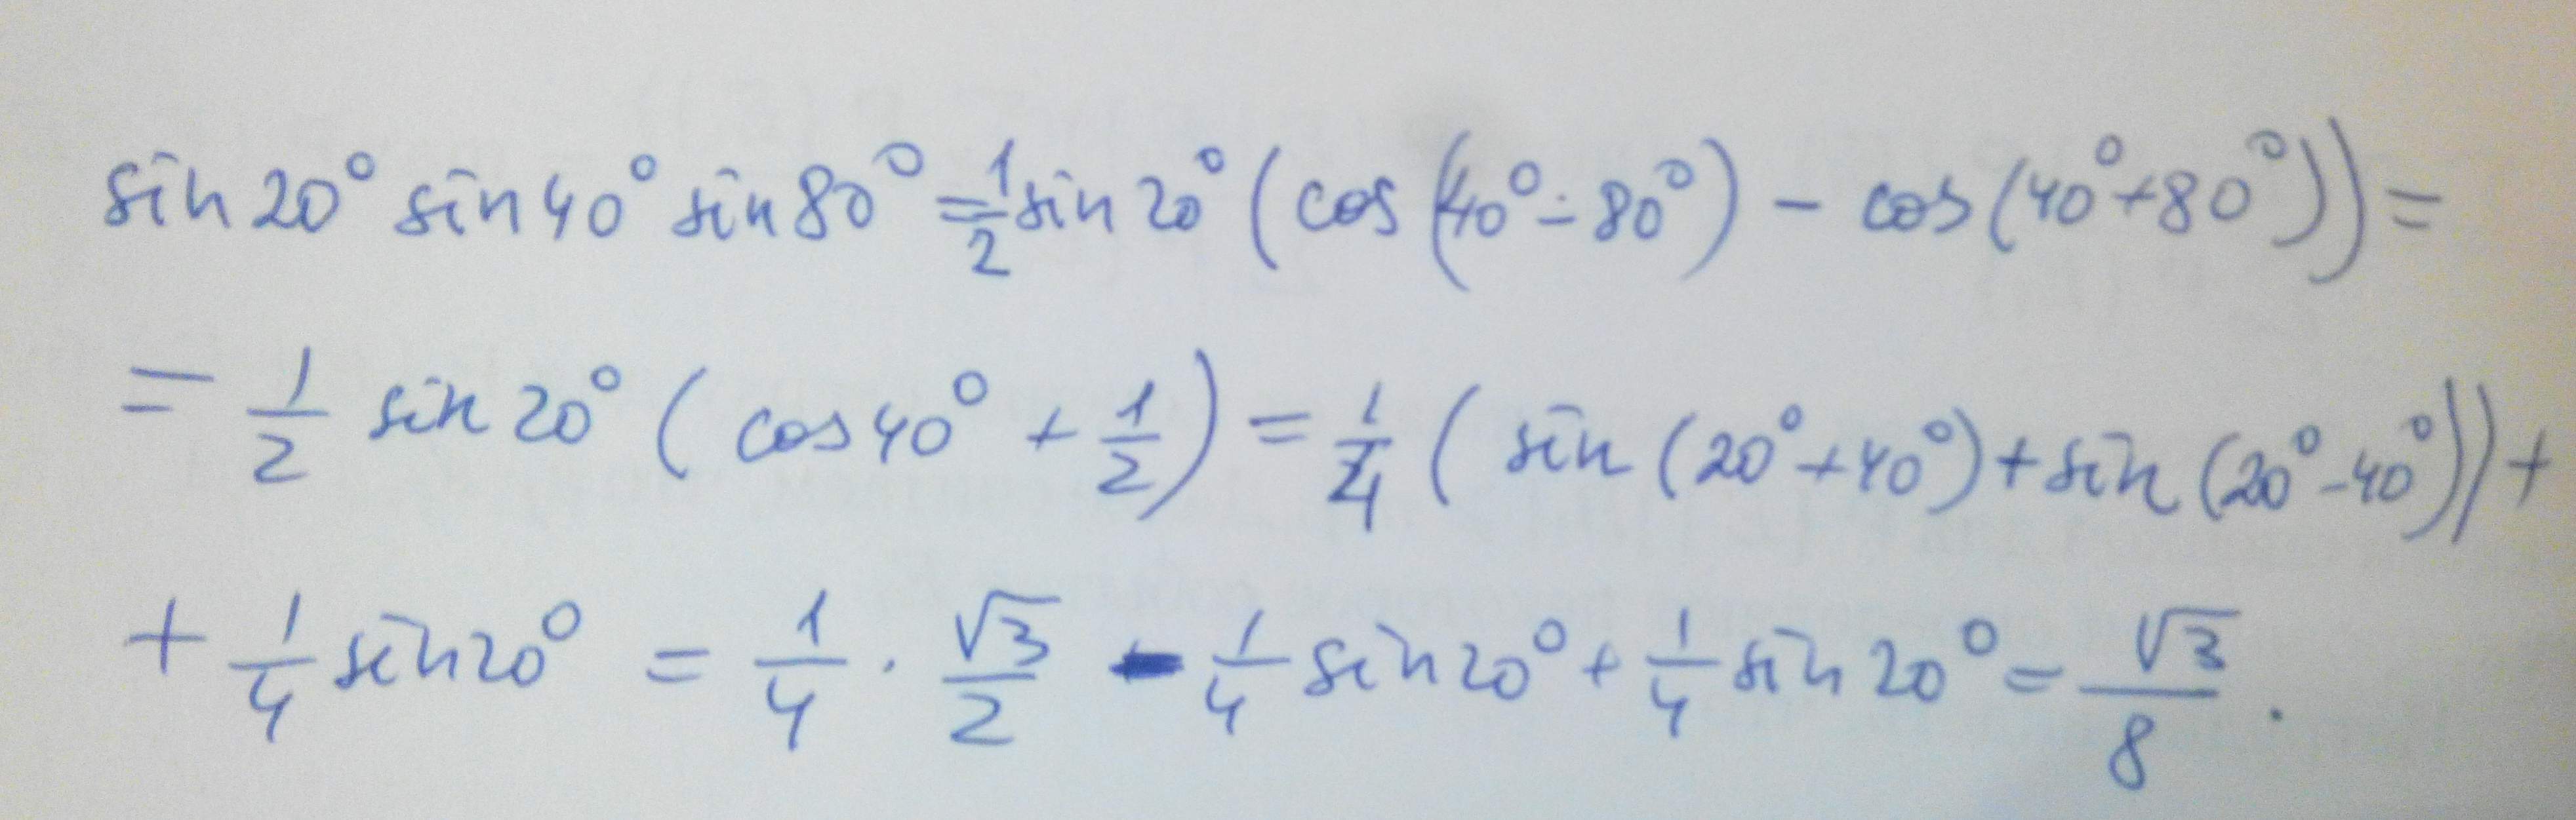 sin 20° sin 40° sin 80° = 1/2 sin 20° (cos (40° - 80°) - cos (40° + 80°)) =
= 1/2 sin 20° (cos 40° + 1/2) = 1/4 (sin (20° + 40°) + sin (20° - 40°)) +
+ 1/4 sin 20° = 1/4 · √3/2 - 1/4 sin 20° + 1/4 sin 20° = √3/8.